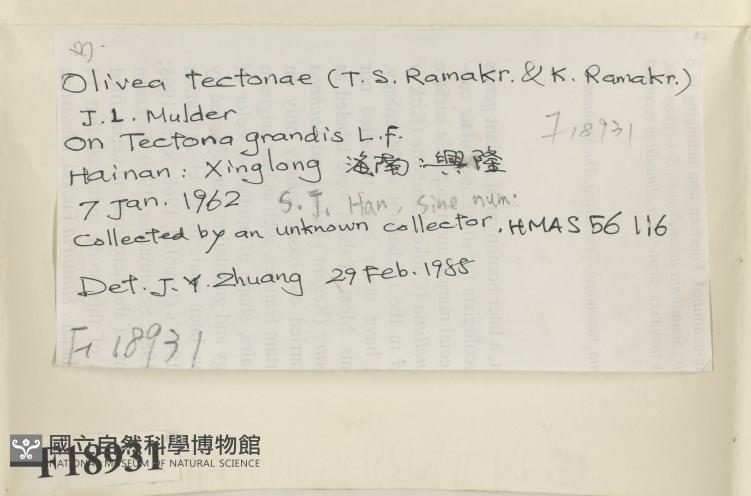 Olivea tectonae (T.S. Ramakr. & K. Ramakr.)
J.L. Mulder
F18931
On Tectona grandis L.f.
Hainan: Xinglong 海南:興隆
7 Jan. 1962 S.J. Han, sine num:
Collected by an unknown collector, HMAS 56116
Det. J.Y. Zhuang 29 Feb. 1988
F18931
國立自然科學博物館
NATIONAL MUSEUM OF NATURAL SCIENCE
F18931